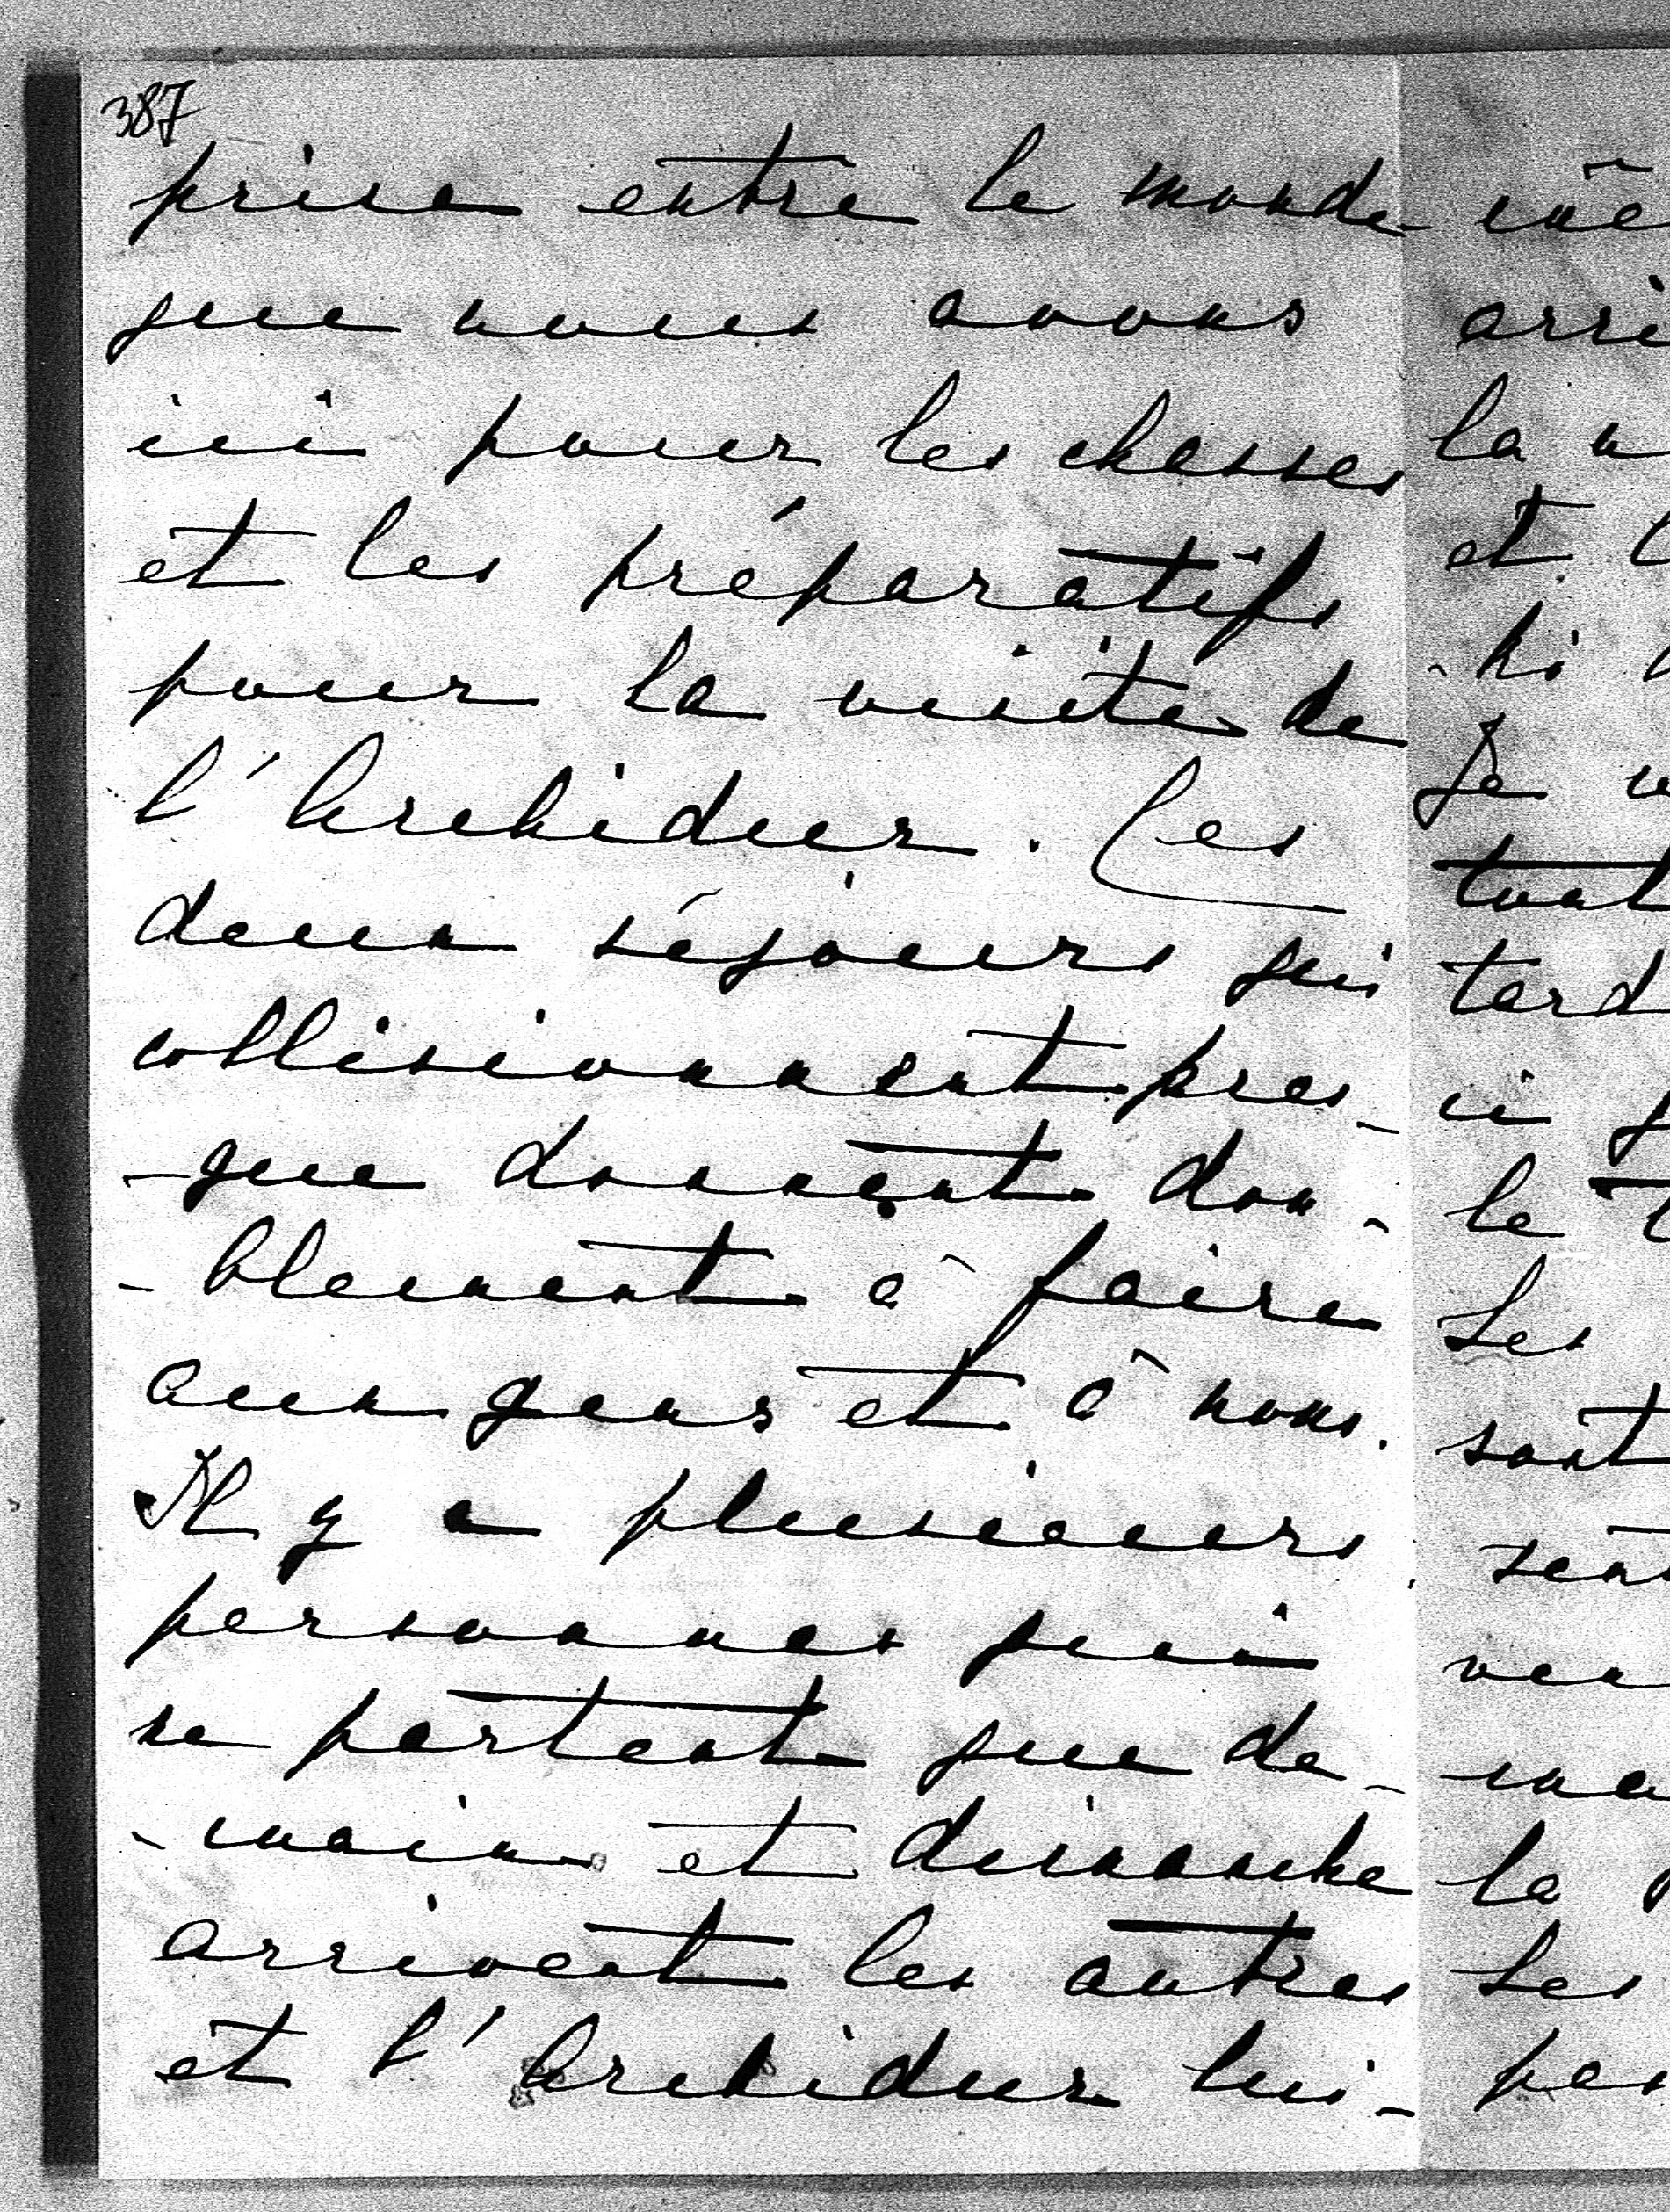 387
prise entre le monde
que nous avons
ici pour les chasses
et les préparatifs
pour la visite de
l'Archiduc. Ces
deux séjours qui
collisionnent pres-
-que donnent dou-
-blement à faire
aux gens et à nous.
Il y a plusieurs
personnes qui
ne partent que de-
-main et dimanche
arrivent les autres
et l'Archiduc lui-
mê
arri
la
et
-ki
Je
tout
tard
ici
le
Les
sont
sent
ven
ma
la
Les
per